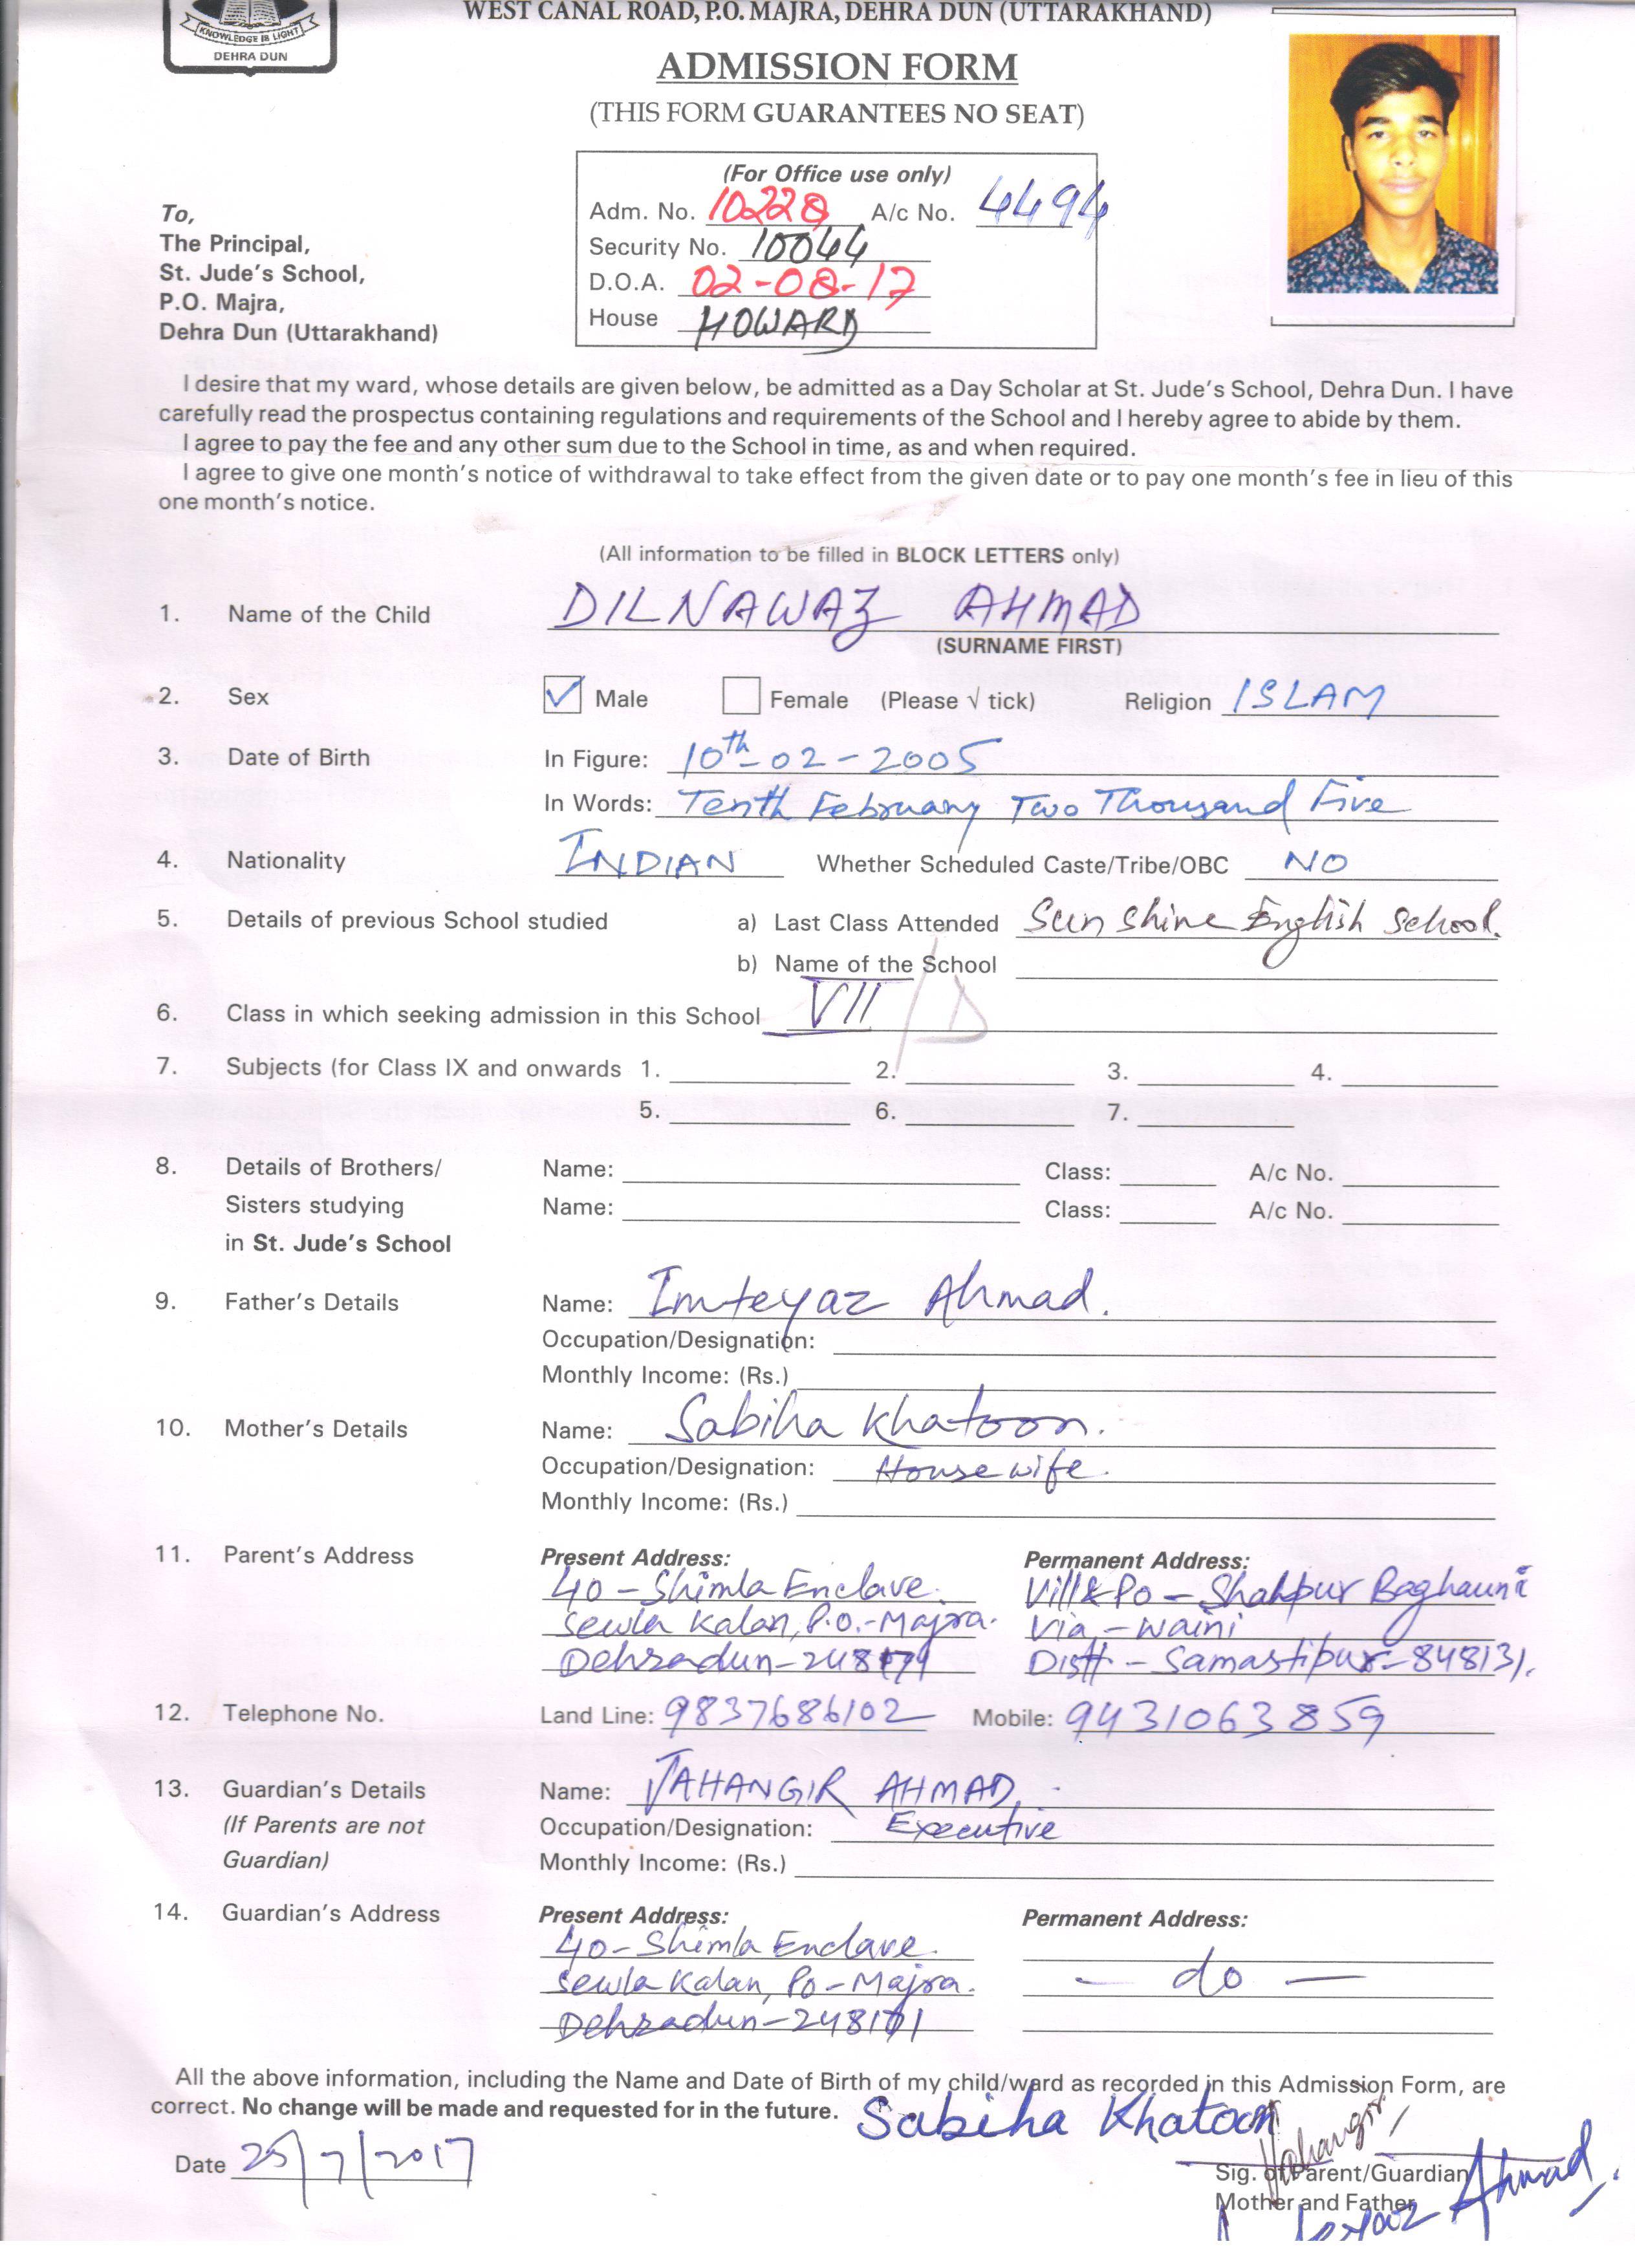 KNOWLEDGE IS LIGHT
DEHRA DUN
WEST CANAL ROAD, P.O. MAJRA, DEHRA DUN (UTTARAKHAND)
ADMISSION FORM
(THIS FORM GUARANTEES NO SEAT)
(For Office use only)
Adm. No. 10228 A/c No. 4494
Security No. 10044
D.O.A. 02-08-17
House HOWARD
To,
The Principal,
St. Jude's School,
P.O. Majra,
Dehra Dun (Uttarakhand)
I desire that my ward, whose details are given below, be admitted as a Day Scholar at St. Jude's School, Dehra Dun. I have
carefully read the prospectus containing regulations and requirements of the School and I hereby agree to abide by them.
I agree to pay the fee and any other sum due to the School in time, as and when required.
I agree to give one month's notice of withdrawal to take effect from the given date or to pay one month's fee in lieu of this
one month's notice.
(All information to be filled in BLOCK LETTERS only)
1. Name of the Child DILNAWAZ AHMAD
(SURNAME FIRST)
2. Sex Male Female (Please √ tick) Religion ISLAM
3. Date of Birth In Figure: 10th-02-2005
In Words: Tenth February Two Thousand Five
4. Nationality INDIAN Whether Scheduled Caste/Tribe/OBC NO
5. Details of previous School studied a) Last Class Attended Sun Shine English School.
b) Name of the School
6. Class in which seeking admission in this School VII / D
7. Subjects (for Class IX and onwards 1. 2. 3. 4.
5. 6. 7.
8. Details of Brothers/ Name: Class: A/c No.
Sisters studying Name: Class: A/c No.
in St. Jude's School
9. Father's Details Name: Imteyaz Ahmad.
Occupation/Designation:
Monthly Income: (Rs.)
10. Mother's Details Name: Sabiha Khatoon.
Occupation/Designation: House wife.
Monthly Income: (Rs.)
11. Parent's Address Present Address: Permanent Address:
40-Shimla Enclave. Vill & Po - Shahpur Baghauni
Sewla Kalan, P.O.-Majra. Via - Waini
Dehradun- Distt - Samastipur-848131.
12. Telephone No. Land Line: 9837686102 Mobile: 9431063859
13. Guardian's Details Name: JAHANGIR AHMAD.
(If Parents are not Occupation/Designation: Executive
Guardian) Monthly Income: (Rs.)
14. Guardian's Address Present Address: Permanent Address:
40-Shimla Enclave.
Sewla Kalan, Po-Majra. - do -
Dehradun-248171
All the above information, including the Name and Date of Birth of my child/ward as recorded in this Admission Form, are
correct. No change will be made and requested for in the future. Sabiha Khatoon
Jahangir
Date 25/7/2017
Sig. of Parent/Guardian
Mother and Father
Ahmad.